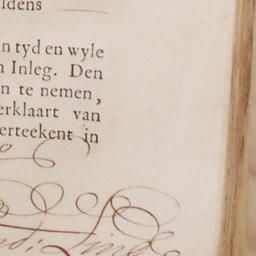 ldens
n tyd en wyle
n Inleg. Den
n te nemen,
erklaart van
erteekent in